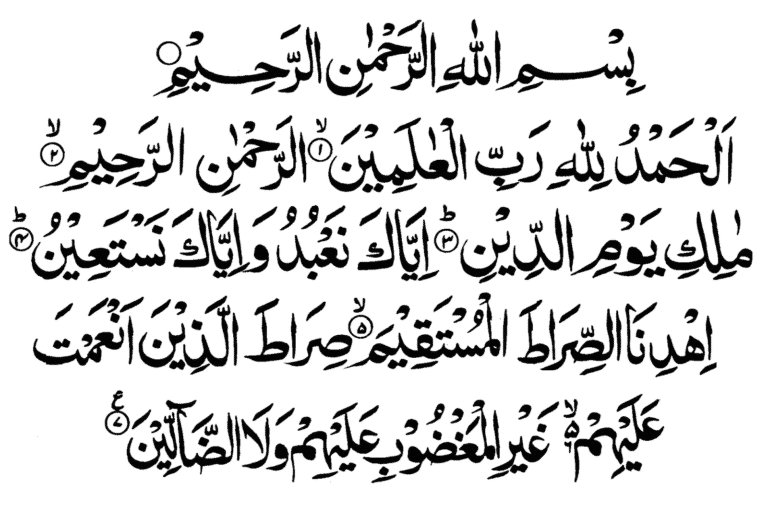 بِسْمِ اللهِ الرَّحْمٰنِ الرَّحِيْمِ ۝
اَلْحَمْدُ لِلّٰهِ رَبِّ الْعٰلَمِيْنَ ۙ﴿۱﴾ الرَّحْمٰنِ الرَّحِيْمِ ۙ﴿۲﴾
مٰلِكِ يَوْمِ الدِّيْنِ ؕ﴿۳﴾ اِيَّاكَ نَعْبُدُ وَاِيَّاكَ نَسْتَعِيْنُ ؕ﴿۴﴾
اِهْدِنَا الصِّرَاطَ الْمُسْتَقِيْمَ ۙ﴿۵﴾ صِرَاطَ الَّذِيْنَ اَنْعَمْتَ
عَلَيْهِمْ ۙ۬ غَيْرِ الْمَغْضُوْبِ عَلَيْهِمْ وَلَا الضَّآلِّيْنَ ﴿۷﴾ ع